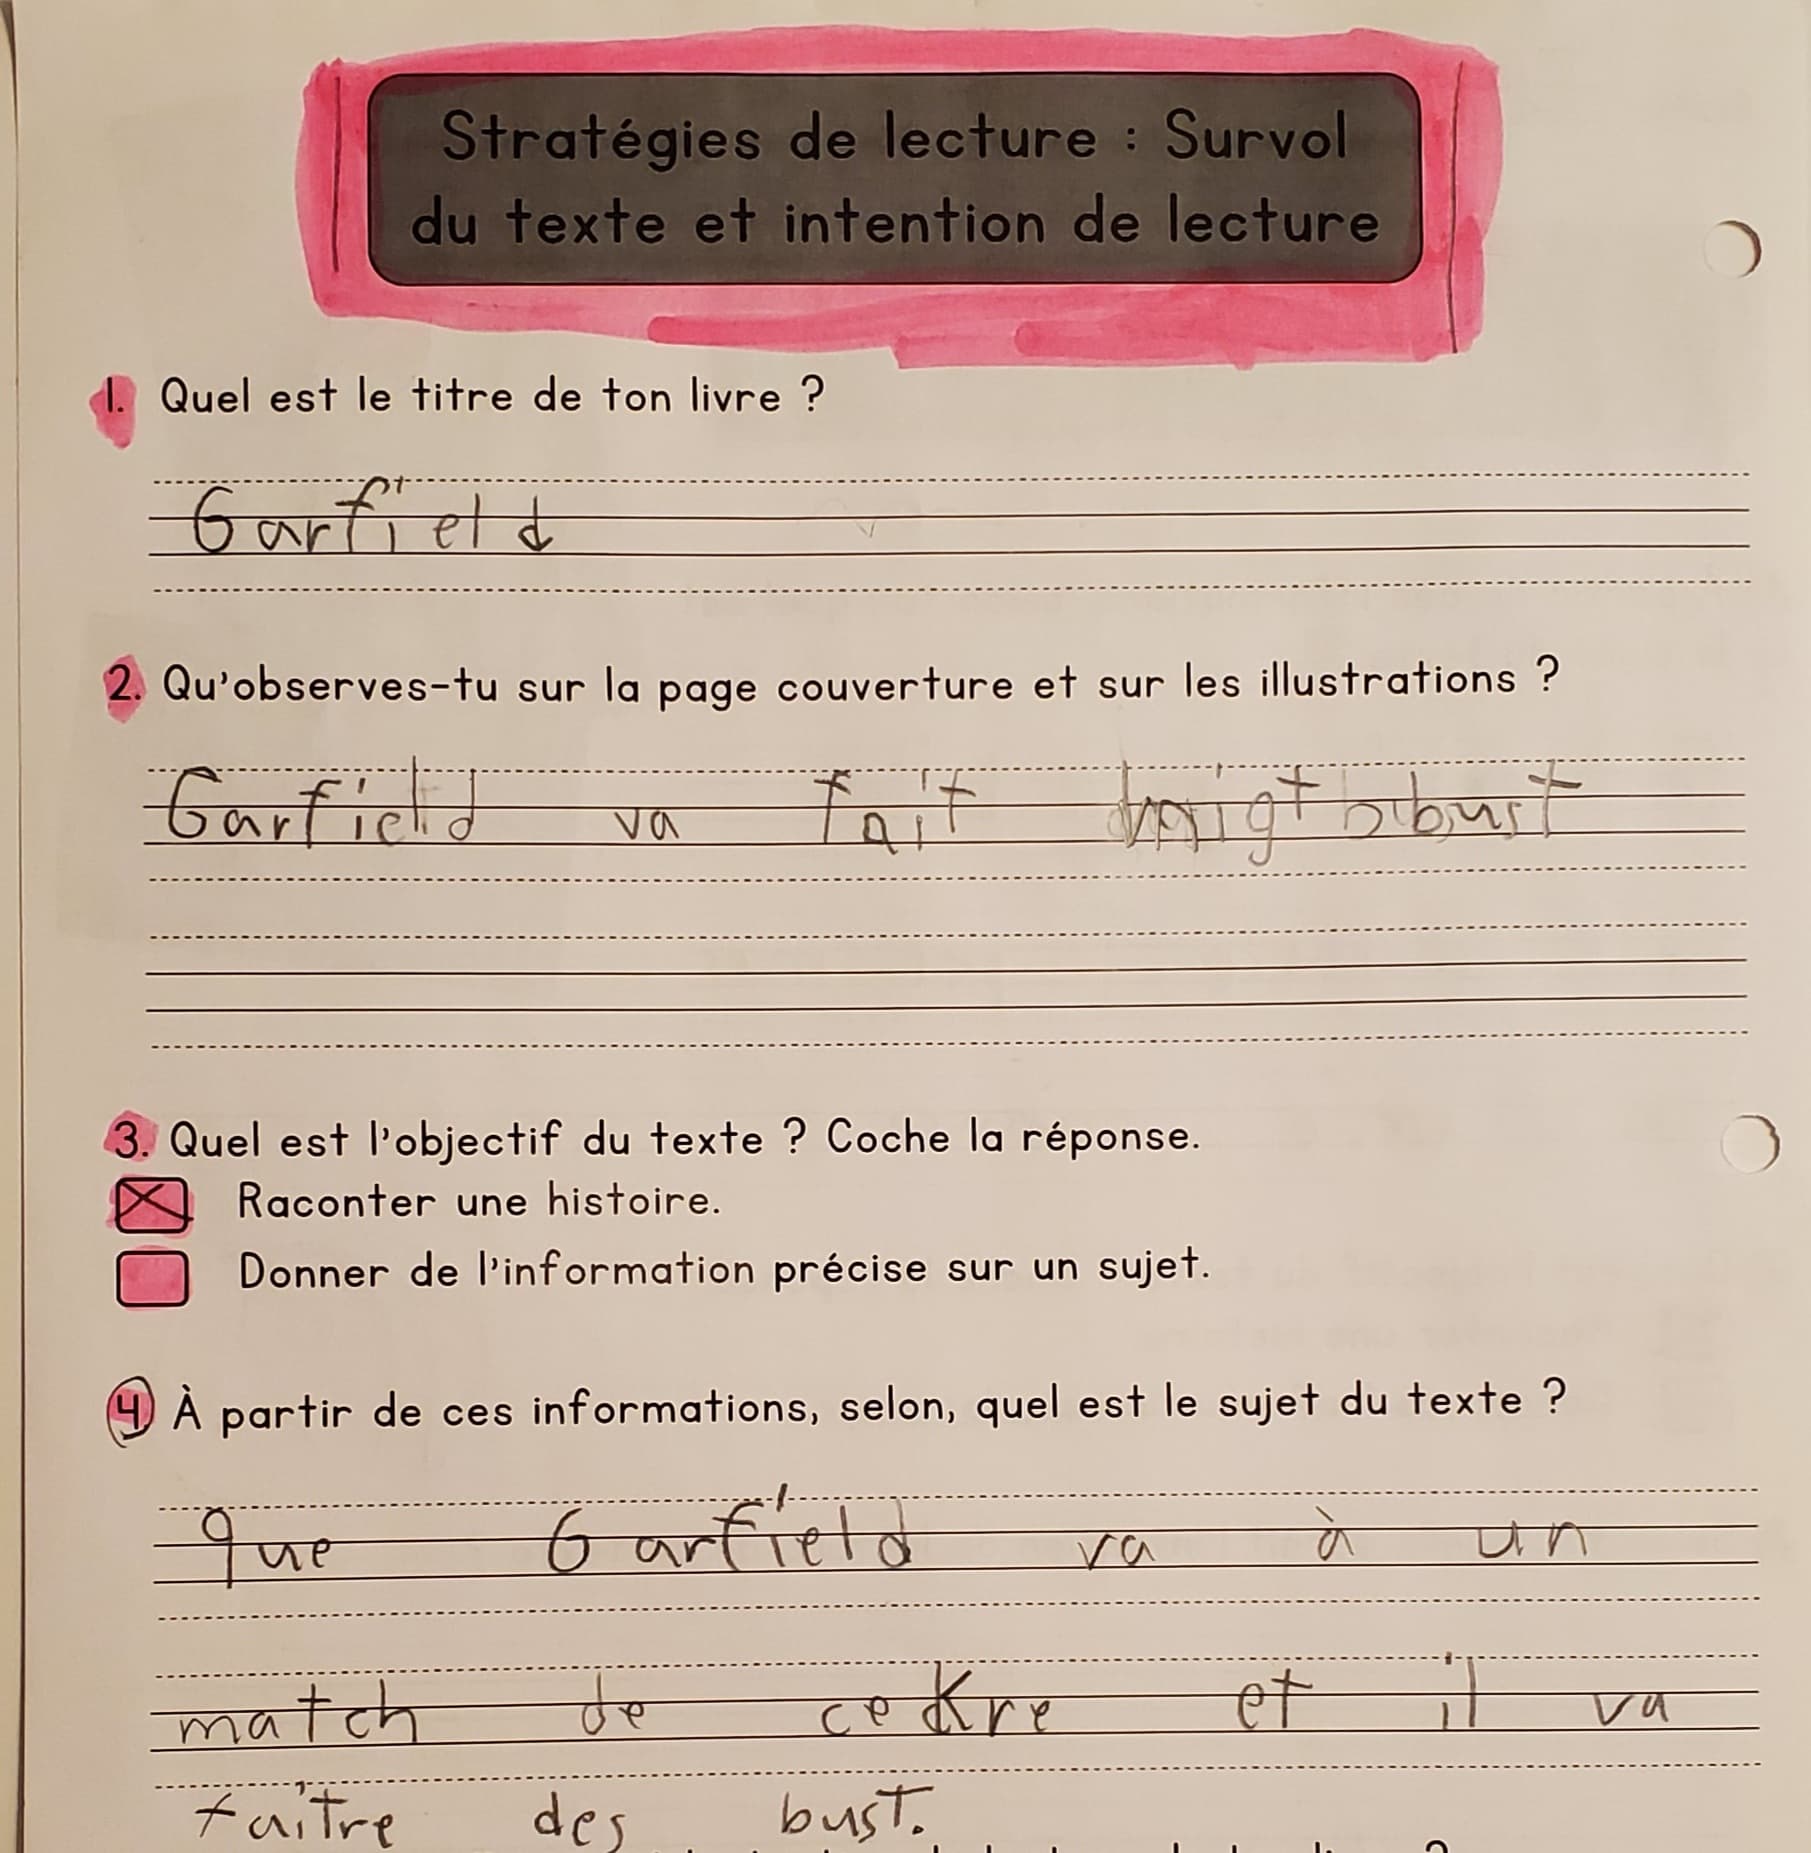 Stratégies de lecture : Survol
du texte et intention de lecture
1. Quel est le titre de ton livre ?
Garfield
2. Qu'observes-tu sur la page couverture et sur les illustrations ?
Garfield va fait bust
3. Quel est l'objectif du texte ? Coche la réponse.
Raconter une histoire.
Donner de l'information précise sur un sujet.
4. À partir de ces informations, selon, quel est le sujet du texte ?
que Garfield va à un
match de cekre et il va
faitre des bust.